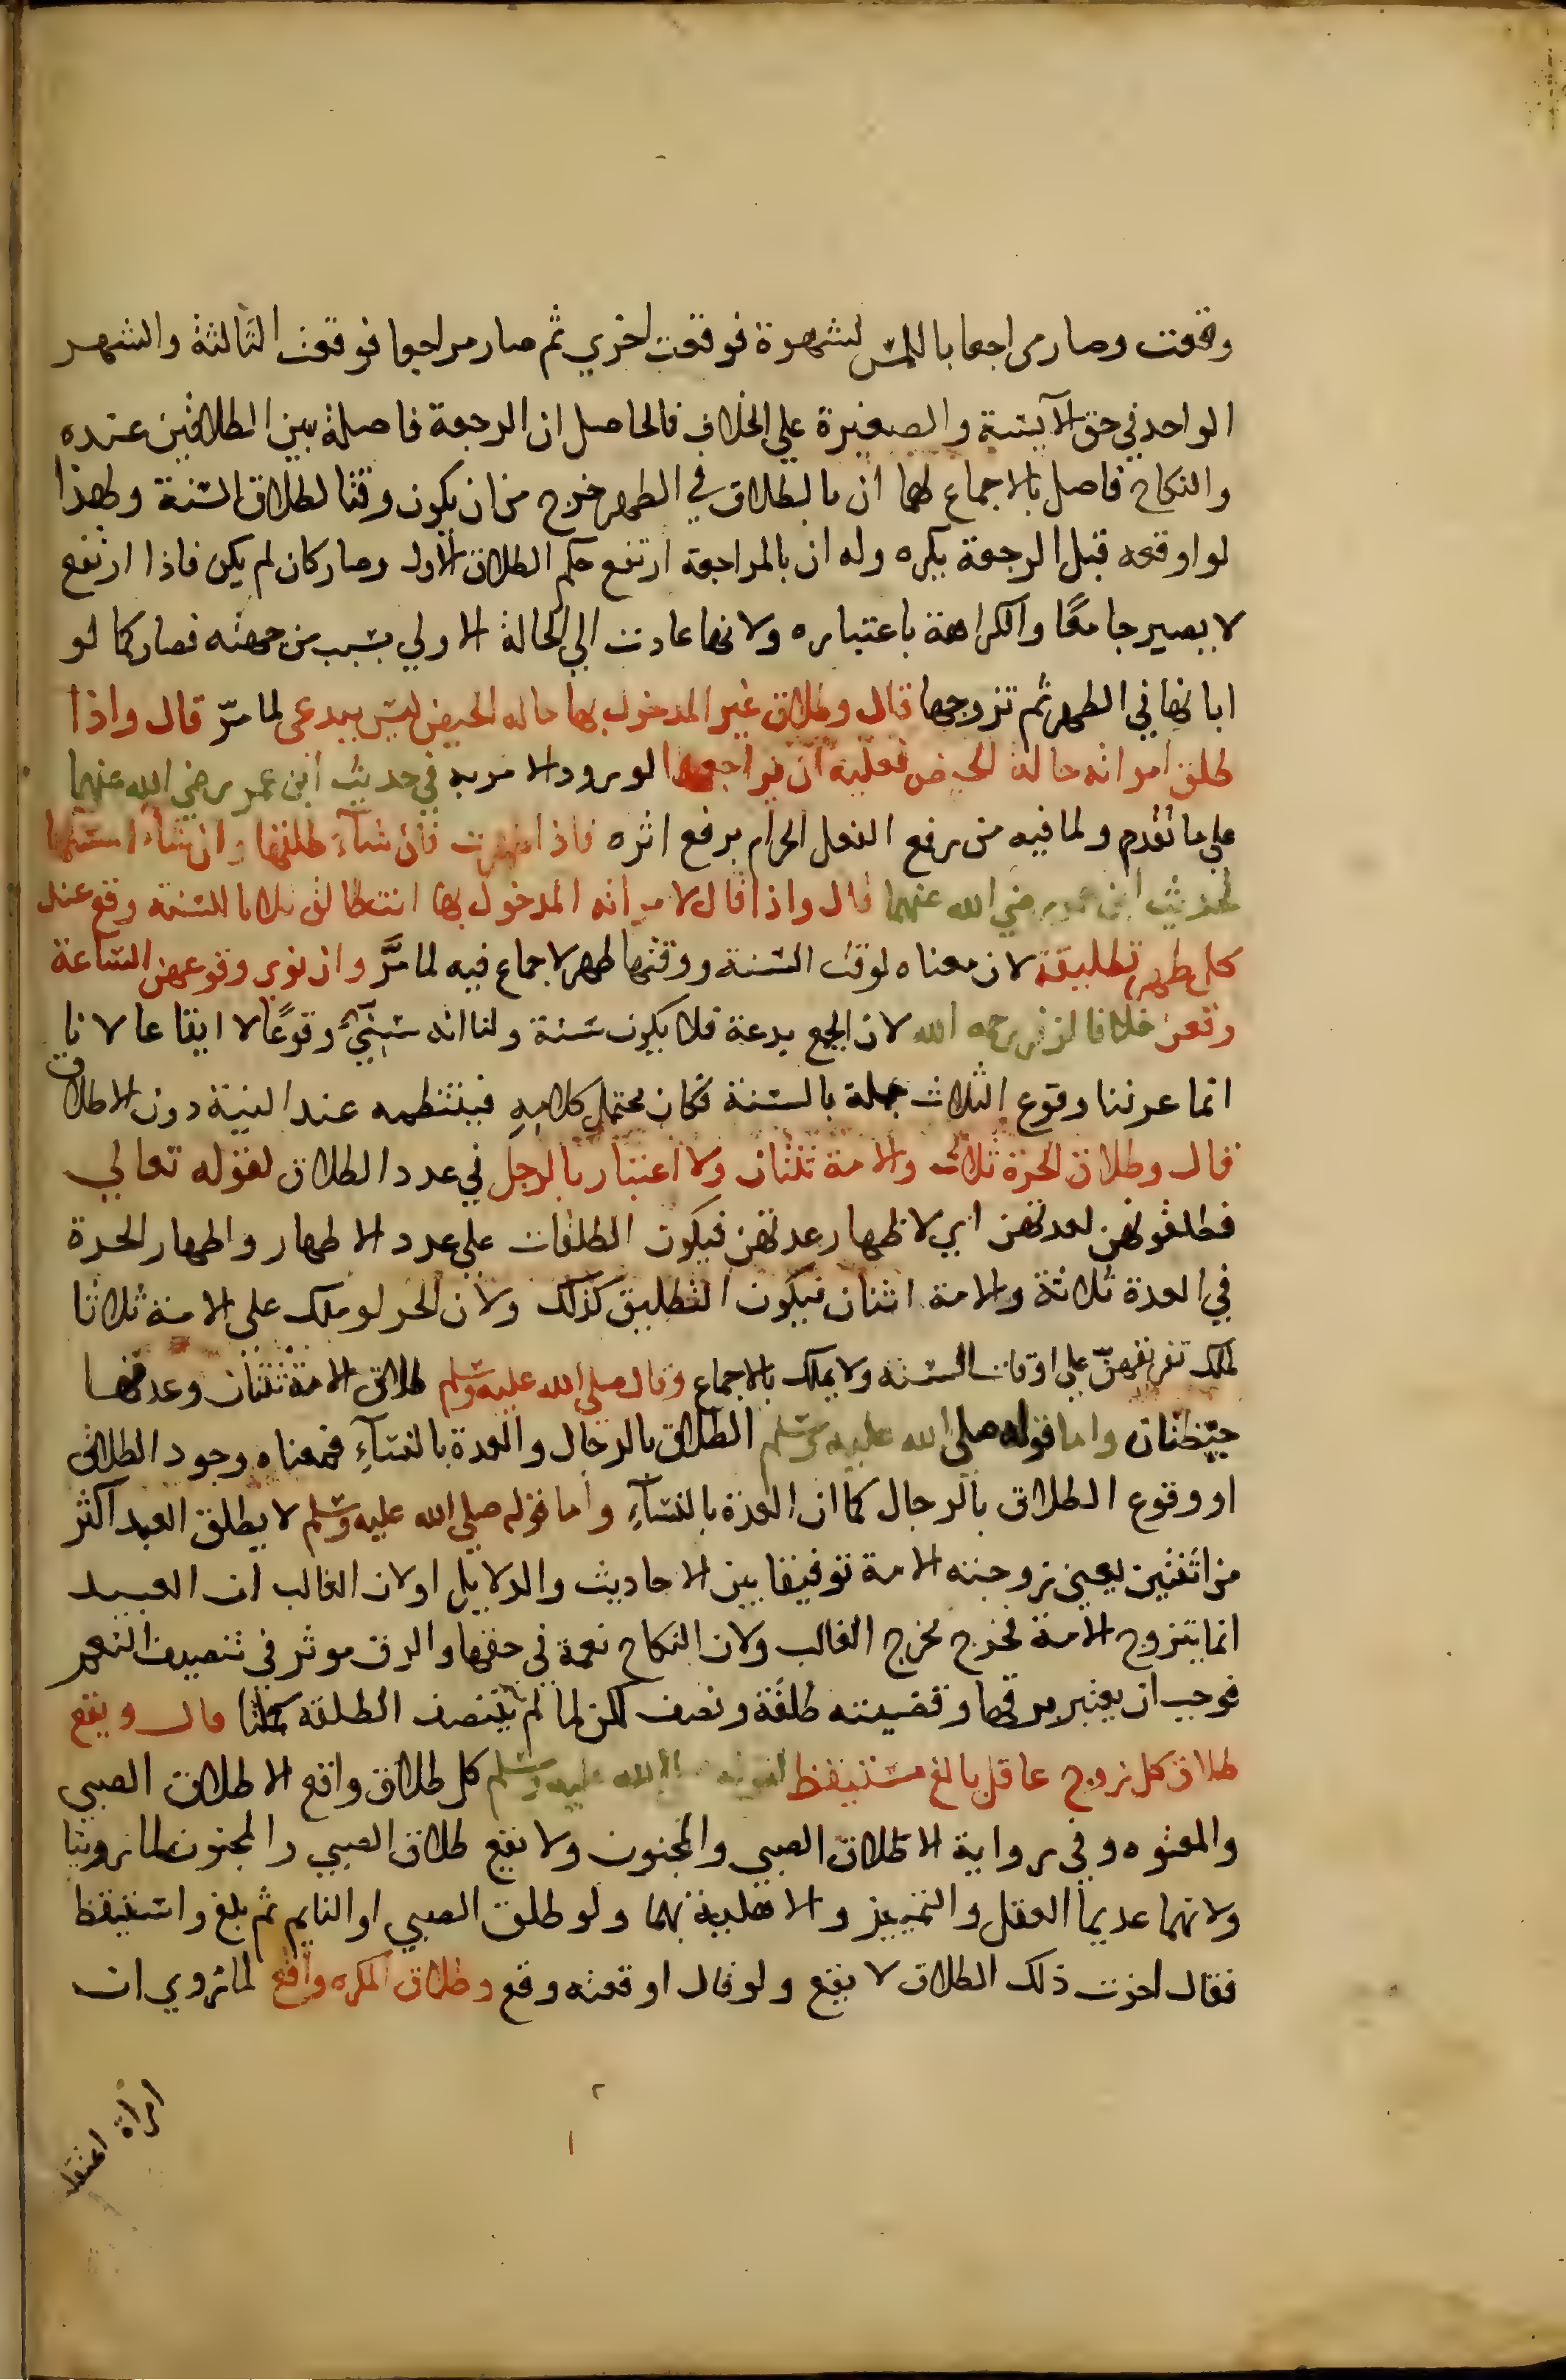 وقعت وصار مراجعا باللمس لشهوة فوقعت اخري ثم صار مراجعا فوقعت الثالثة والشهر
الواحد في حق الآيسة والصغيرة علي الخلاف فالحاصل ان الرجعة فاصلة بين الطلاقين عنده
والنكاح فاصل بالاجماع لهما ان بالطلاق في الطهر خرج من ان يكون وقتا لطلاق السنة ولهذا
لو اوقعه قبل الرجعة يكره وله ان بالمراجعة ارتفع حكم الطلاق الاول وصار كان لم يكن فاذا ارتفع
لا يصير جامعًا والكراهة باعتباره ولانها عادت الي الحالة الاولي بسبب من جهته فصار كما لو
ابانها في الطهر ثم تزوجها قال وطلاق غير المدخول بها حاله الحيض ليس ببدعي لما مرّ قال واذا
طلق امراته حالة الحيض فعليه ان يراجعها لورود الامر به في حديث ابن عمر رضي الله عنهما
علي ما تقدم ولما فيه من رفع الفعل الحرام برفع اثره فاذا طهرت فان شاء طلقها وان شاء امسكها
لحديث ابن عمر رضي الله عنهما قال واذا قال لامراته المدخول بها انت طالق ثلاثا للسنة وقع عند
كل طهر تطليقة لان معناه لوقت السنة ووقتها طهر لا جماع فيه لما مَرَّ وان نوي وقوعهن الساعة
وقعن خلافا لزفر رحمه الله لان الجمع بدعة فلا يكون سنة ولنا انه سنيّ وقوعًا لا ايقاعا لانا
انما عرفنا وقوع الثلاث جملة بالسنة فكان محتمل كلامهِ فينتظمه عند النية دون الاطلاق
قال وطلاق الحرة ثلاث والامة ثنتان ولا اعتبار بالرجل في عدد الطلاق لقوله تعالي
فطلقوهن لعدتهن اي لاطهار عدتهن فيكون الطلقات علي عدد الاطهار واطهار الحرة
في العدة ثلاثة والامة اثنان فيكون التطليق كذلك ولان الحر لو ملك على الامة ثلاثا
لملك تفريقهنّ علي اوقات السنه ولا يملك بالاجماع وقال صلي الله عليه وسلم طلاق الامة ثنتان وعدتها
حيضتان واما قوله صلي الله عليه وسلم الطلاق بالرجال والعدة بالنسآءِ فمعناه وجود الطلاق
او وقوع الطلاق بالرجال كما ان العدة بالنسآءِ واما قوله صلي الله عليه وسلم لا يطلق العبد اكثر
من اثنتين يعني زوجته الامة توفيقا بين الاحاديث والدلايل او لان الغالب ان العبيد
انما يتزوج الامة فخرج مخرج الغالب ولان النكاح نعمة في حقها والرق موثر في تنصيف النعم
فوجب ان يعتبر برقها وقضيته طلقة ونصف لكن لما لم يتنصف الطلقة كملنا قال ويقع
طلاق كل زوج عاقل بالغ مستيقظ لقوله صلي الله عليه وسلم كل طلاق واقع الا طلاق الصبي
والمعتوه وفي رواية الا طلاق الصبي والمجنون ولا يقع طلاق الصبي والمجنون لما روينا
ولانهما عديما العقل والتمييز والاهلية بهما ولو طلق الصبي او النايم ثم بلغ واستيقظ
فقال اجزت ذلك الطلاق لا يقع ولو قال اوقعته وقع وطلاق المكره واقع لما روي ان
امرأة اعتقل